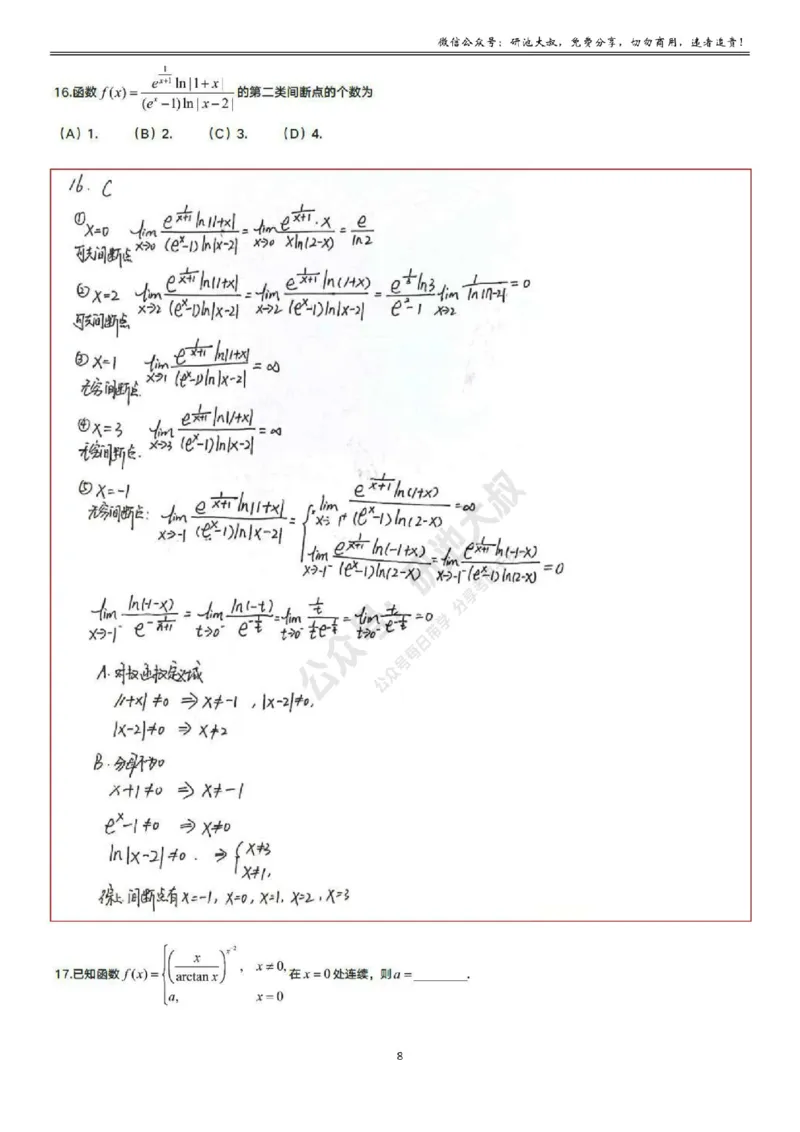 微信公众号：研池大叔，免费分享，切勿商用，违者追责！
16.函数 f(x) = \frac{e^{\frac{1}{x+1}} \ln|1+x|}{(e^x-1)\ln|x-2|} 的第二类间断点的个数为
(A) 1. (B) 2. (C) 3. (D) 4.
16. C
① x=0 \lim_{x→0} \frac{e^{\frac{1}{x+1}} \ln|1+x|}{(e^x-1)\ln|x-2|} = \lim_{x→0} \frac{e^{\frac{1}{x+1}} \cdot x}{x\ln(2-x)} = \frac{e}{\ln 2}
可去间断点
② x=2 \lim_{x→2} \frac{e^{\frac{1}{x+1}} \ln|1+x|}{(e^x-1)\ln|x-2|} = \lim_{x→2} \frac{e^{\frac{1}{x+1}} \ln(1+x)}{(e^x-1)\ln|x-2|} = \frac{e^{\frac{1}{3}} \ln 3}{e^2-1} \lim_{x→2} \frac{1}{\ln|x-2|} = 0
可去间断点
③ x=1 \lim_{x→1} \frac{e^{\frac{1}{x+1}} \ln|1+x|}{(e^x-1)\ln|x-2|} = ∞
无穷间断点.
④ x=3 \lim_{x→3} \frac{e^{\frac{1}{x+1}} \ln|1+x|}{(e^x-1)\ln|x-2|} = ∞
无穷间断点.
⑤ x=-1
无穷间断点： \lim_{x→-1} \frac{e^{\frac{1}{x+1}} \ln|1+x|}{(e^x-1)\ln|x-2|} = { \lim_{x→-1^+} \frac{e^{\frac{1}{x+1}} \ln(1+x)}{(e^x-1)\ln(2-x)} = ∞
\lim_{x→-1^-} \frac{e^{\frac{1}{x+1}} \ln(-1+x)}{(e^x-1)\ln(2-x)} = \lim_{x→-1^-} \frac{e^{\frac{1}{x+1}} \ln(-1-x)}{(e^x-1)\ln(2-x)} = 0
\lim_{x→-1^-} \frac{\ln(-1-x)}{e^{-\frac{1}{x+1}}} = \lim_{t→0^-} \frac{\ln(-t)}{e^{-\frac{1}{t}}} = \lim_{t→0^-} \frac{\frac{1}{t}}{\frac{1}{t^2}e^{-\frac{1}{t}}} = \lim_{t→0^-} \frac{t}{e^{-\frac{1}{t}}} = 0
A. 对数函数定义域
|1+x| ≠ 0 ⇒ x ≠ -1 , |x-2| ≠ 0,
|x-2| ≠ 0 ⇒ x ≠ 2
B. 分母不为0
x+1 ≠ 0 ⇒ x ≠ -1
e^x-1 ≠ 0 ⇒ x ≠ 0
\ln|x-2| ≠ 0. ⇒ { x ≠ 3
x ≠ 1,
综上 间断点有 x=-1, x=0, x=1, x=2, x=3
公众号：研池大叔
公众号每日带学 分享
17.已知函数 f(x) = { \left(\frac{x}{\arctan x}\right)^{x^{-2}}, x ≠ 0, 在 x = 0 处连续，则 a = ________.
a, x = 0
8